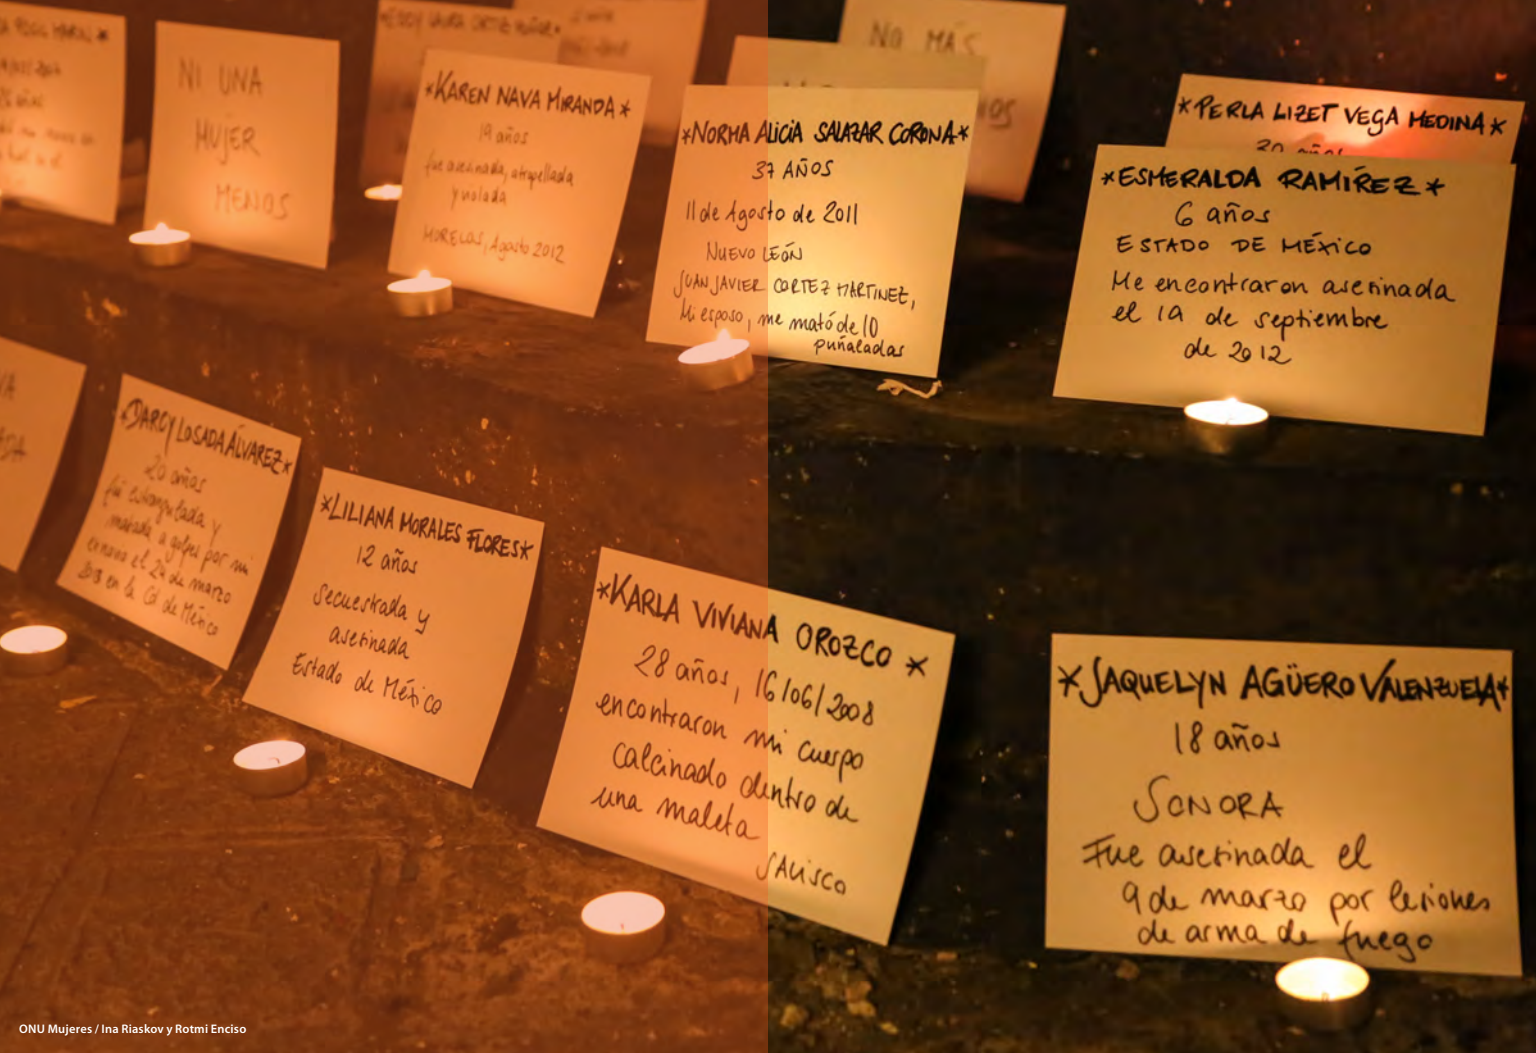 NI UNA
MUJER
MENOS
*KAREN NAVA MIRANDA*
19 años
fue asesinada, atropellada
y violada
MORELOS, Agosto 2012
*NORMA ALICIA SALAZAR CORONA*
37 AÑOS
11 de Agosto de 2011
NUEVO LEÓN
JUAN JAVIER CORTEZ MARTINEZ,
Mi esposo, me mató de 10
puñaladas
NO MÁS
*PERLA LIZET VEGA MEDINA*
30 años
*ESMERALDA RAMÍREZ*
6 años
ESTADO DE MÉXICO
Me encontraron asesinada
el 19 de septiembre
de 2012
*DARCY LOSADA ÁLVAREZ*
20 años
fui estrangulada y
matada a golpes por mi
el 24 de marzo
2013 en la Cd de México
*LILIANA MORALES FLORES*
12 años
Secuestrada y
asesinada
Estado de México
*KARLA VIVIANA OROZCO*
28 años, 16/06/2008
encontraron mi cuerpo
calcinado dentro de
una maleta
JALISCO
*JAQUELYN AGÜERO VALENZUELA*
18 años
SONORA
Fue asesinada el
9 de marzo por lesiones
de arma de fuego
ONU Mujeres / Ina Riaskov y Rotmi Enciso